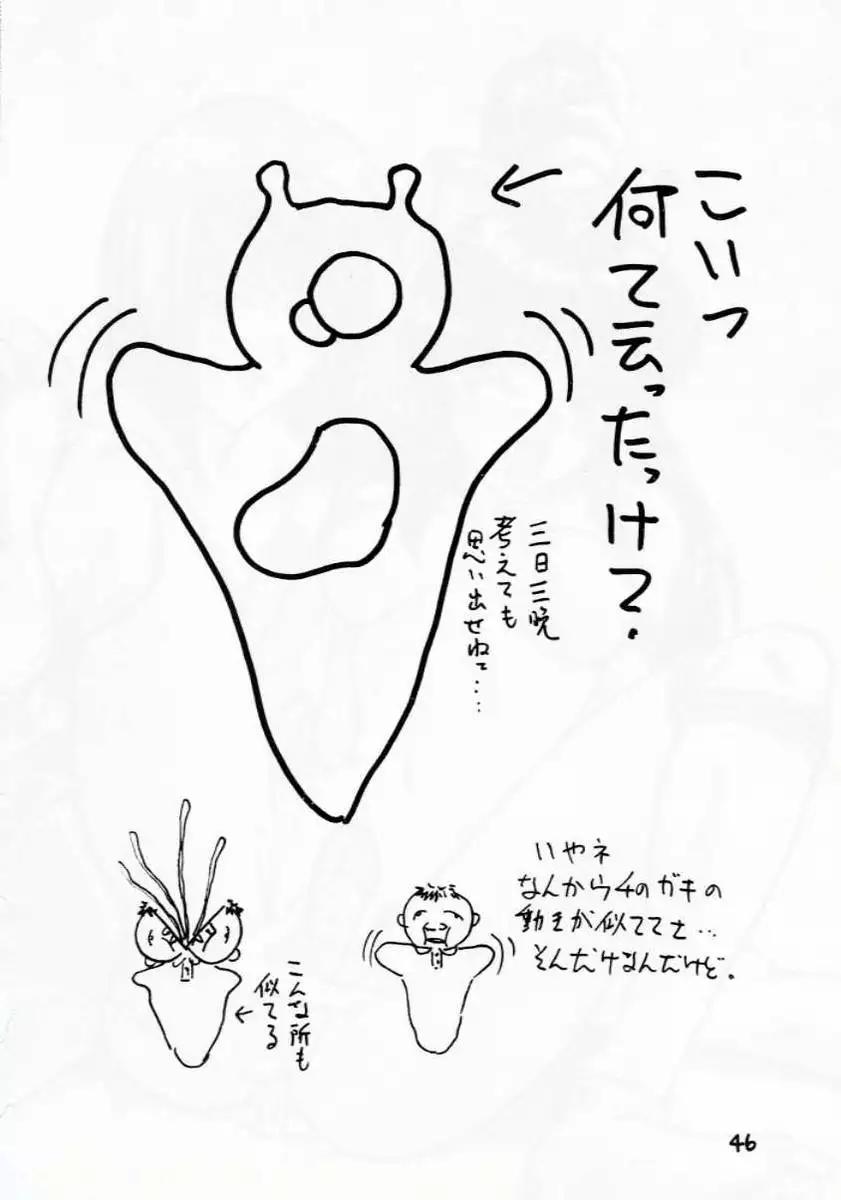 こいつ
何て云ったっけ?
三日三晩
考えても
思い出せねて・・・・
いやネ
なんかウチのガキの
動きが似ててさ・・・
そんだけなんだけど。
こんな所も
似てる
46